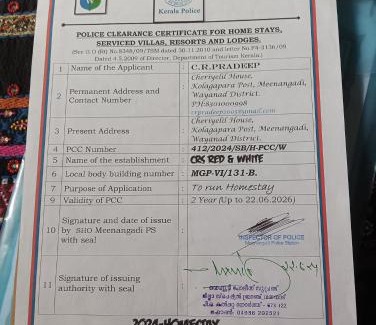 Kerala Police
POLICE CLEARANCE CERTIFICATE FOR HOME STAYS,
SERVICED VILLAS, RESORTS AND LODGES.
1 Name of the Applicant : C.R.PRADEEP
2 Permanent Address and Contact Number : Cheriyelil House,
Kolagapara Post, Meenangadi,
Wayanad District.
3 Present Address : Cheriyelil House,
Kolagapara Post, Meenangadi,
Wayanad District.
4 PCC Number : 412/2024/SB/H-PCC/W
5 Name of the establishment : CRS RED & WHITE
6 Local body building number : MGP-VI/131-B.
7 Purpose of Application : To run Homestay
9 Validity of PCC : 2 Year (Up to 22.06.2026)
10 Signature and date of issue
by SHO Meenangadi PS
with seal
INSPECTOR OF POLICE
11 Signature of issuing
authority with seal
2024-HOMESTAY